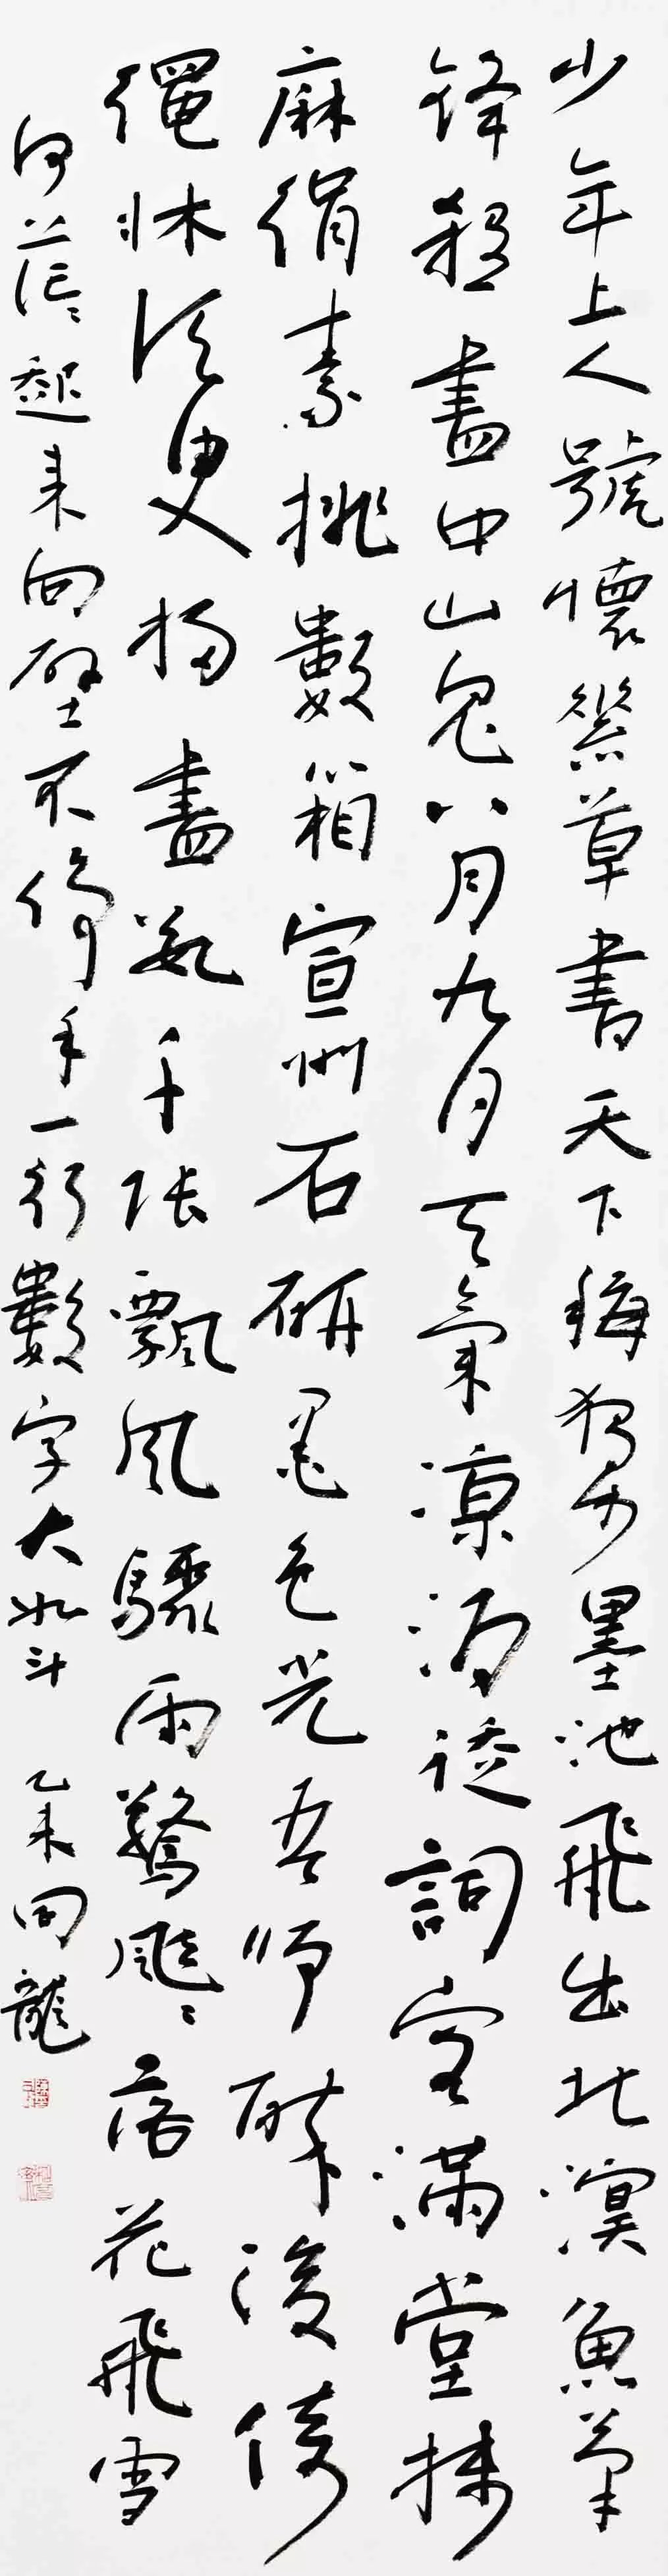 少年上人號懷素草書天下稱獨步墨池飛出北溟魚筆
鋒殺盡中山兔八月九月天氣涼酒徒詞客滿堂
麻絹素排數箱宣州石硯墨色光吾師醉後倚
繩床須臾掃盡數千張飄風驟雨驚颯颯落花飛雪
何茫茫起來向壁不停手一行數字大如斗 乙未 龍